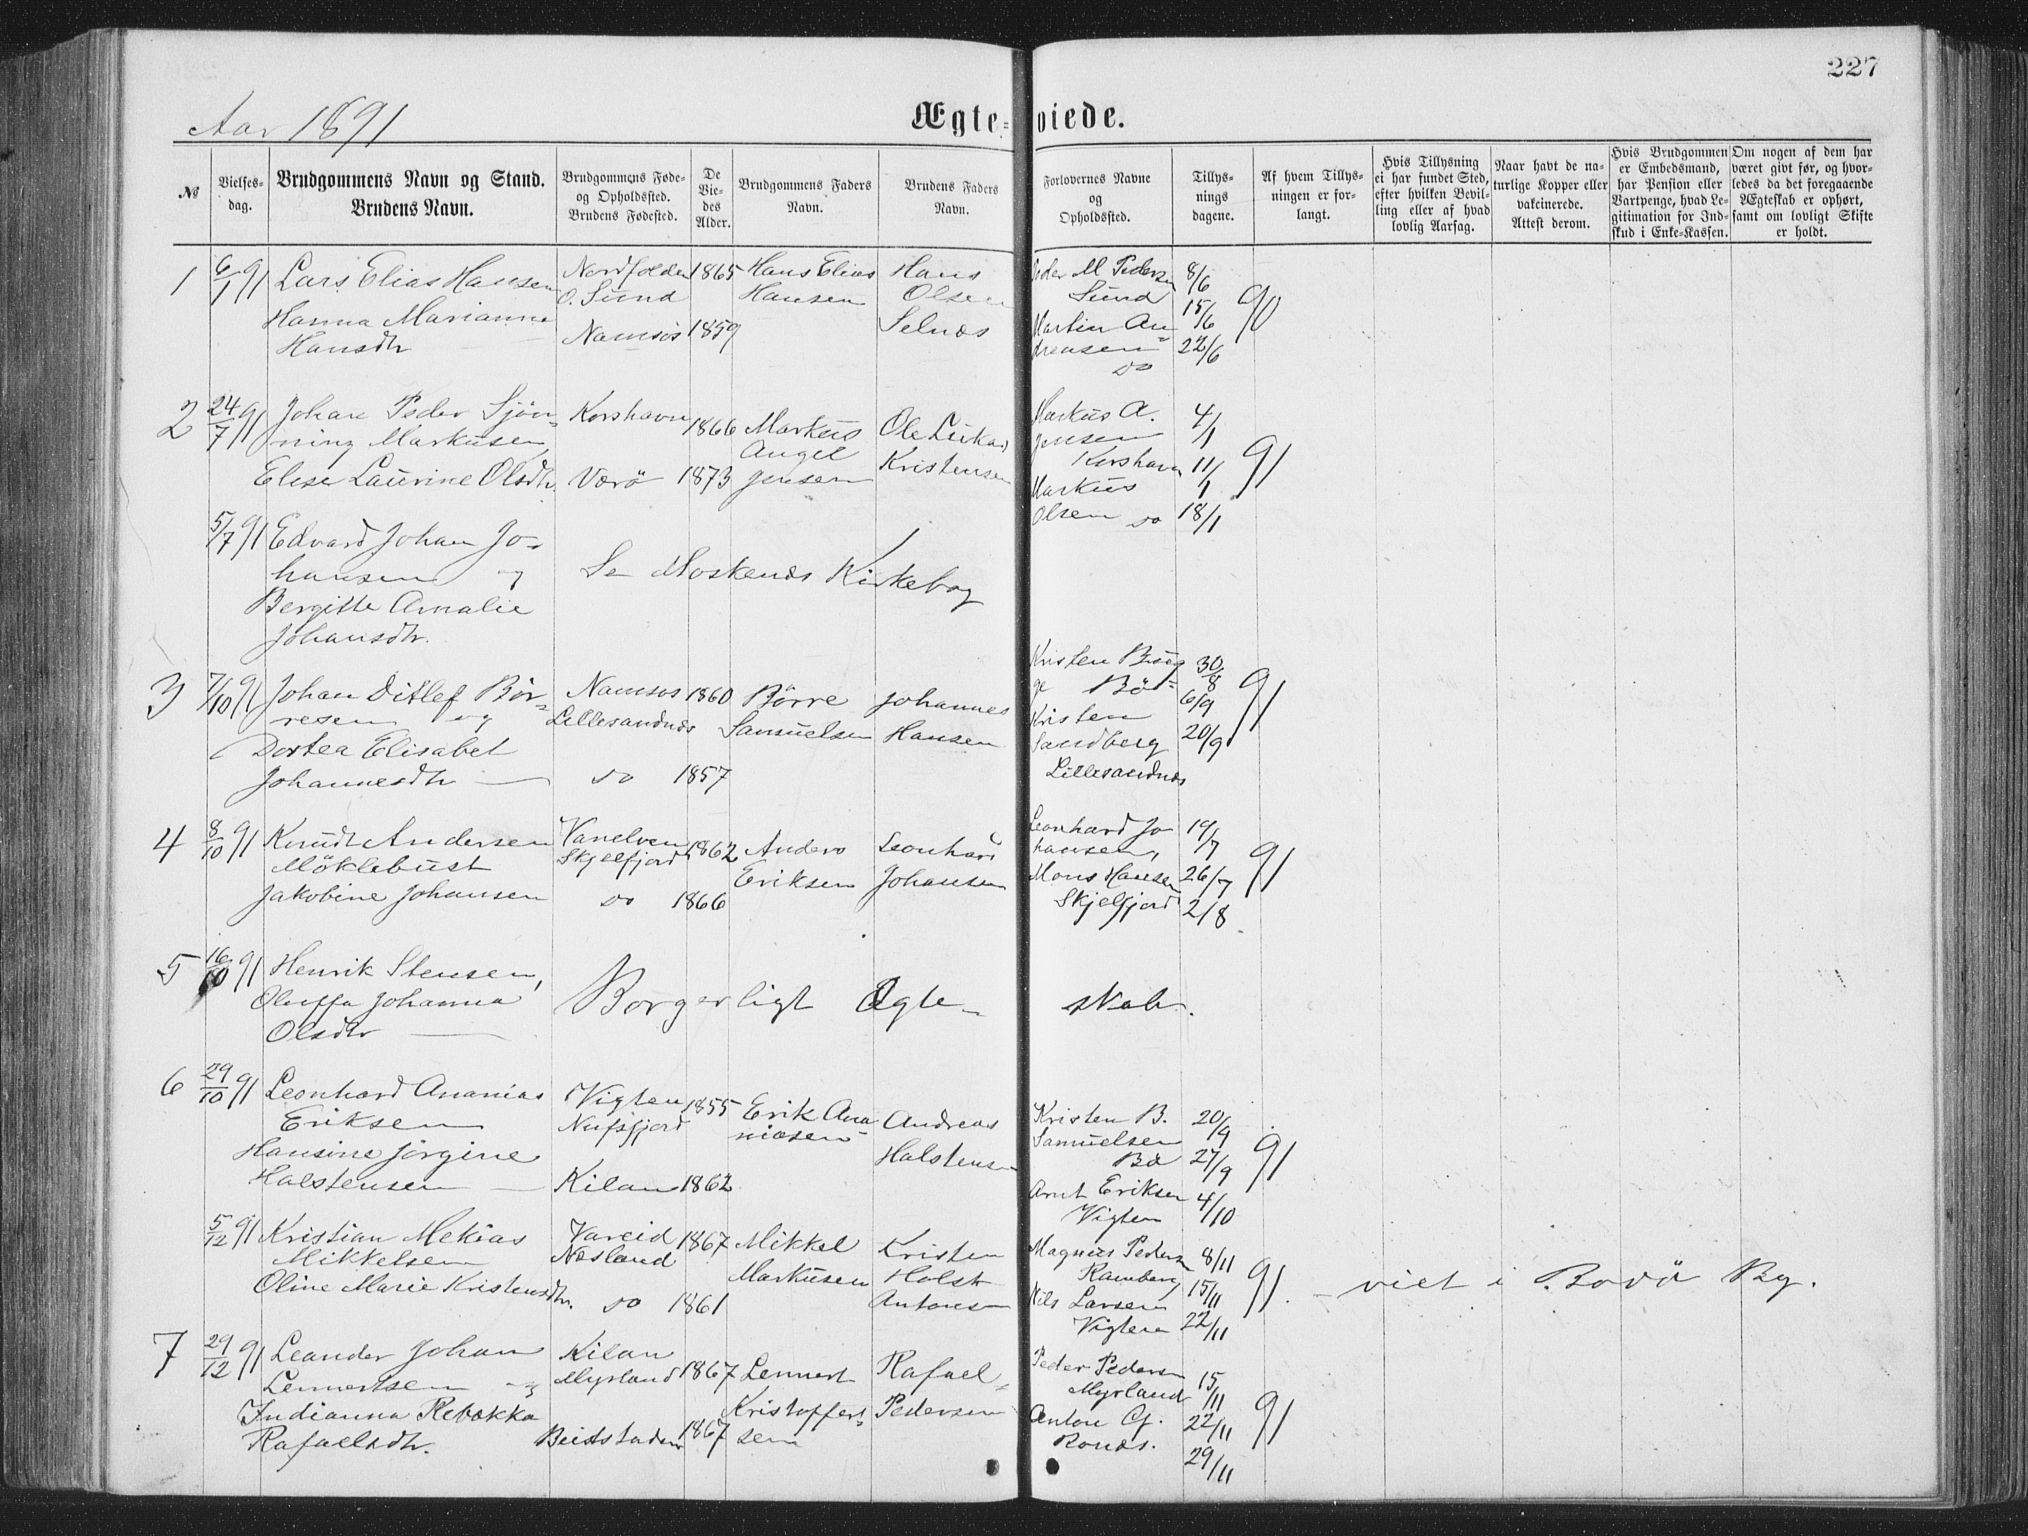 227
Aar 1891
Ægte-viede.
№
Vielses-
dag.
Brudgommens Navn og Stand.
Brudens Navn.
Brudgommens Føde-
og Opholdssted.
Brudens Fødested.
De
Vie-
des
Alder.
Brudgommens Faders
Navn.
Brudens Faders
Navn.
Forlovernes Navne
og
Opholdssted.
Tillys-
nings
dagene.
Af hvem Tillys-
ningen er for-
langt.
Hvis Tillysning
ei har fundet Sted,
efter hvilken Bevil-
ling eller af hvad
lovlig Aarsag.
Naar havt de na-
turlige Kopper eller
vakcinerede.
Attest derom.
Hvis Brudgommen
er Embedsmand,
har Pension eller
Vartpenge, hvad Le-
gitimation for Ind-
skud i Enke-Kassen.
Om nogen af dem har
været givt før, og hvor-
ledes da det foregaaende
Ægteskab er ophørt,
samt om lovligt Skifte
er holdt.
1
6/1 91
Lars Elias Hansen
Hanna Marianne
Hansdtr
Nordfolden
O. Sund
Namsos
1865
1859
Hans Elias
Hansen
Hans
Olsen
Selnæs
Peder M Pedersen
Sund
Martin An
dreasen
do
8/6
15/6
22/6
90
2
24/7 91
Johan Peder Sjön-
ning Markusen
Elise Laurine Olsdtr.
Korshavn
Værö
1866
1873
Markus
Angel
Jensen
Ole Lukas
Kristensen
Markus A.
Jensen
Korshavn
Markus
Olsen do
4/1
11/1
18/1
91
5/7 91
Edvard Johan Jo-
hansen og
Bergitte Amalie
Johansdtr.
Se Moskenæs Kirkebog
3
7/10 91
Johan Ditlef Bör-
resen og
Dortea Elisabet
Johannesdtr
Namsos
Lillesandnæs
do
1860
1857
Börre
Samuelsen
Johannes
Hansen
Kristen Brug
ge Bö
Kristen
Sandberg
Lillesandnæs
30/8
6/9
20/9
91
4
8/10 91
Knudt Andersen
Möklebust
Jakobine Johansen
Vanelven
Skjelfjord
do
1862
1866
Anders
Eriksen
Leonhard
Johansen
Leonhard Jo
hansen,
Mons Hansen
Skjelfjord
19/7
26/7
2/8
91
5
16/10 91
Henrik Stensen,
Oluffa Johanna
Olsdtr
Borgerligt Ægte-skab.
6
29/10 91
Leonhard Ananias
Eriksen
Hansine Jörgine
Halstensen
Vigten
Nufsfjord
Kilan
1855
1862
Erik Ana
niasen
Andreas
Halstensen
Kristen B.
Samuelsen
Bö
Arnt Eriksen
Vigten
20/9
27/9
4/10
91
5/12 91
Kristian Mekias
Mikkelsen
Oline Marie Kristensdtr.
Vareid
Næsland
do
1867
1861
Mikkel
Markusen
Kristen
Holst
Antonsen
Magnus Pedersen
Ramberg
Nils Larsen
Vigten
8/11
15/11
22/11
91.
- viet i Bodö By.
7
29/12 91
Leander Johan
Lennertsen og
Indianna Rebekka
Rafaelsdtr.
Kilan
Myrland
Beidstaden
1867
1867
Lennert
Kristoffer-
sen
Rafael
Pedersen
Peder Pedersen
Myrland
Anton
Ronæs.
15/11
22/11
29/11
91